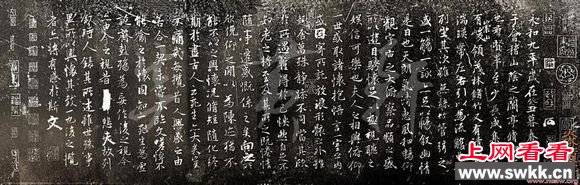 永和九年歲在癸丑暮春之初會
于會稽山陰之蘭亭脩禊事
也群賢畢至少長咸集此地
有崇山峻領茂林脩竹又有清流激
湍映帶左右引以為流觴曲水
列坐其次雖無絲竹管弦之
盛一觴一詠亦足以暢敘幽情
是日也天朗氣清惠風和暢仰
觀宇宙之大俯察品類之盛
所以遊目騁懷足以極視聽之
娛信可樂也夫人之相與俯仰
一世或取諸懷抱悟言一室之內
或因寄所託放浪形骸之外雖
趣舍萬殊靜躁不同當其欣
於所遇蹔得於己怏然自足不
知老之將至及其所之既惓情
隨事遷感慨係之矣向之所
欣俛仰之閒以為陳迹猶不
能不以之興懷況脩短隨化終
期於盡古人云死生亦大矣豈
不痛哉每攬昔人興感之由
若合一契未嘗不臨文嗟悼不
能喻之於懷固知一死生為虛
誕齊彭殤為妄作後之視今
亦由今之視昔悲夫故列
敘時人錄其所述雖世殊事
異所以興懷其致一也後之攬
者亦將有感於斯文
上网看看
www.swkk.cn